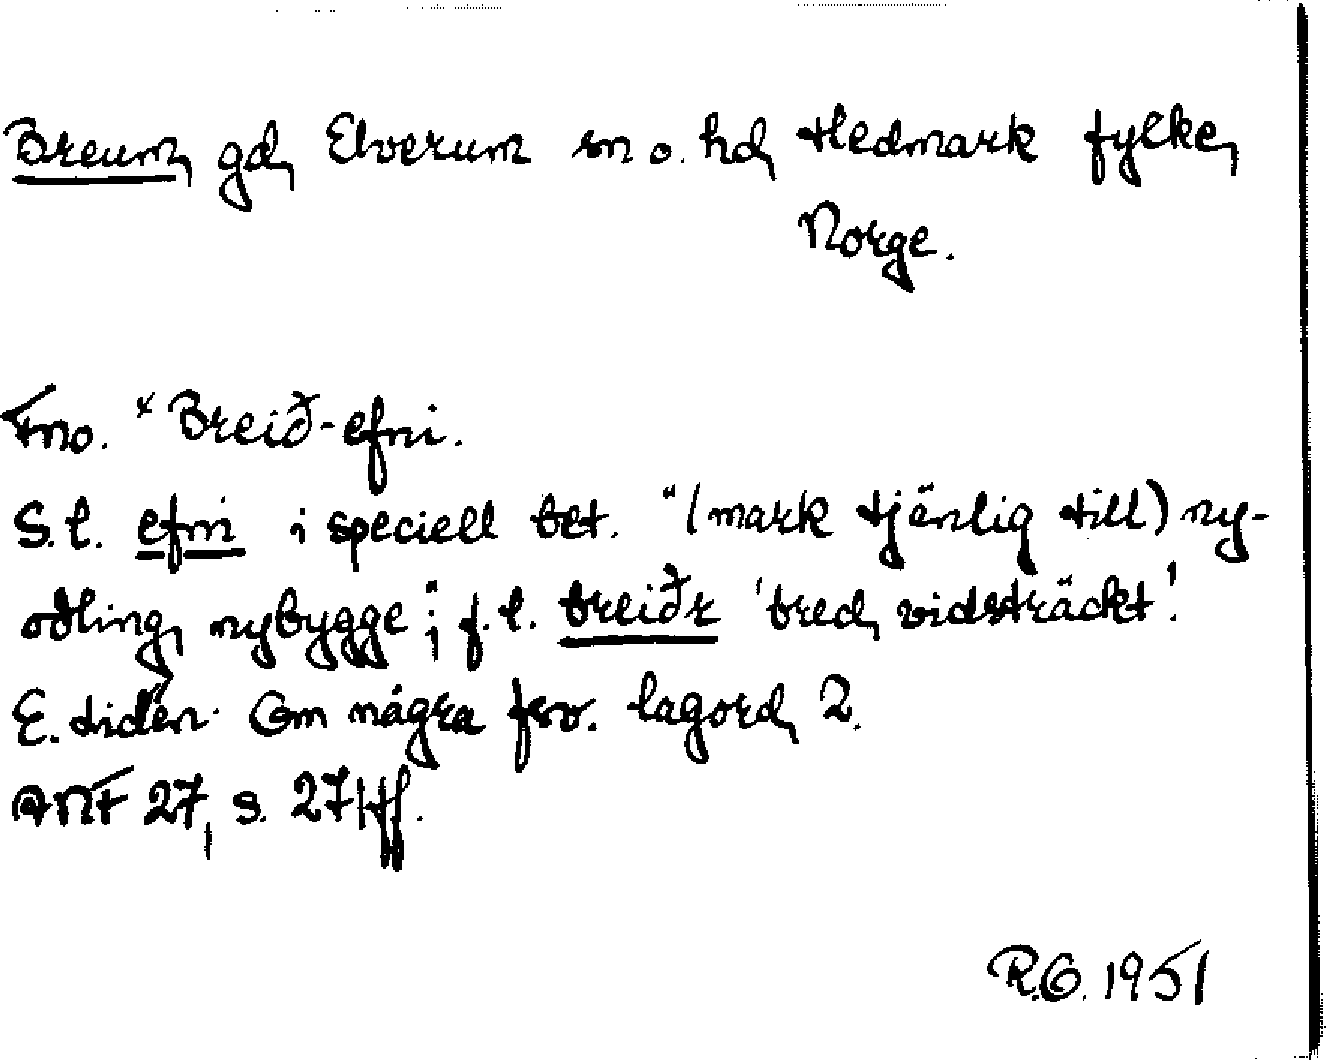 Breum, gd, Elverum sn o. hd, Hedmark fylke,
Norge.
Fno. *Breið-efni.
S.l. efni i speciell bet. "(mark tjänlig till) ny-
odling, nybygge"; f.l. breiðr 'bred, vidsträckt'.
E. Lidén. Om några fno. lagord, 2.
ANF 27, s. 271 ff.
R.O. 1951